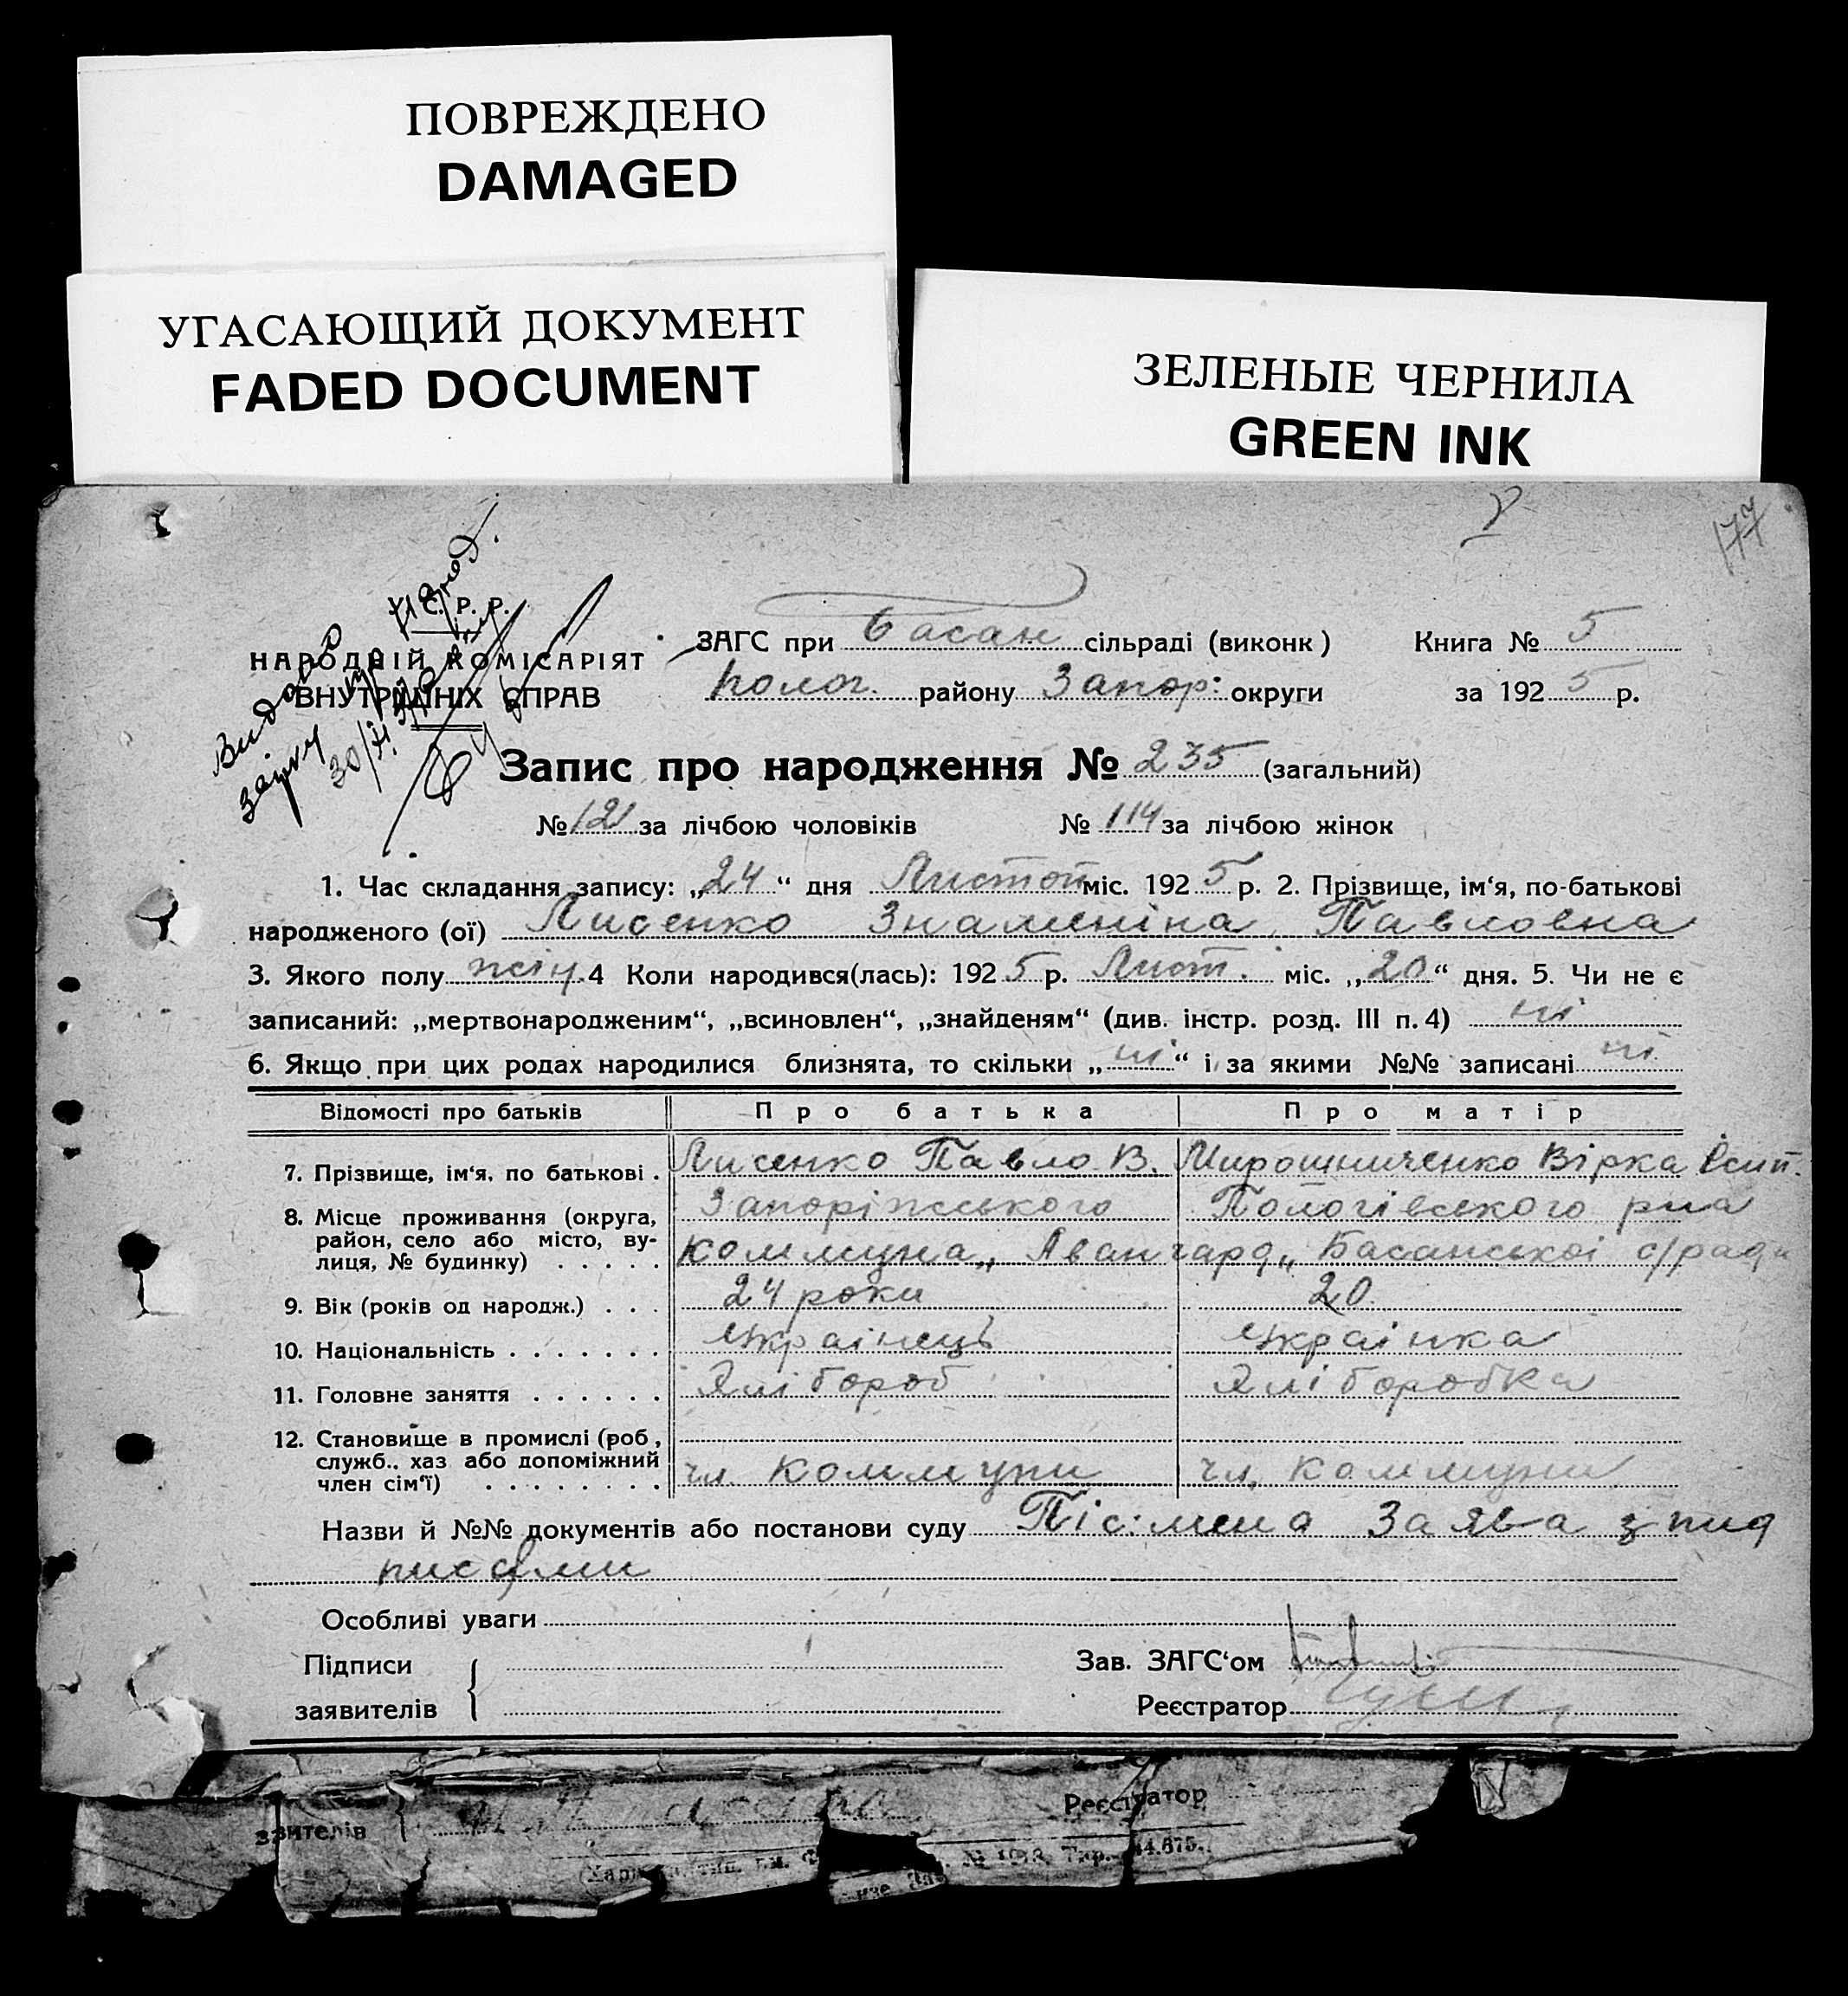 ПОВРЕЖДЕНО
DAMAGED
УГАСАЮЩИЙ ДОКУМЕНТ
FADED DOCUMENT
ЗЕЛЕНЫЕ ЧЕРНИЛА
GREEN INK
177
У. С. Р. Р.
НАРОДНІЙ КОМІСАРІЯТ
ВНУТРІШНІХ СПРАВ
Видано
30/VI
ЗАГС при Басан сільраді (виконк) Книга № 5
Полог. району Запор: округи за 1925 р.
Запис про народження № 235 (загальний)
№ 121 за лічбою чоловіків № 114 за лічбою жінок
1. Час складання запису: „24“ дня Листоп міс. 1925 р. 2. Прізвище, ім‘я, по-батькові
народженого (ої) Лисенко Знаменіна Павловна
3. Якого полу жін. 4 Коли народився(лась): 1925 р. Лист. міс. „20“ дня. 5. Чи не є
записаний: „мертвонародженим“, „всиновлен“, „знайденям“ (див. інстр. розд. III п. 4) ні
6. Якщо при цих родах народилися близнята, то скільки „ні“ і за якими №№ записані ні
Відомості про батьків Про батька Про матір
7. Прізвище, ім‘я, по батькові . Лисенко Павло В. Мирошниченко Вірка Єсип.
8. Місце проживання (округа, Запоріжського Пологівського рна
район, село або місто, ву-
лиця, № будинку) . . . . . коммуна „Авангард„ Басанськоі с/ради
9. Вік (років од народж.) . . . 24 роки 20
10. Національність . . . . . . . Украінець Украінка
11. Головне заняття . . . . . . Хлібороб Хліборобка
12. Становище в промислі (роб,
служб., хаз або допоміжний
член сім‘ї) . . . . . . . . чл. коммуни чл. коммуни
Назви й №№ документів або постанови суду Пісьмена Заява з пид
писами
Особливі уваги
Підписи
заявителів
Зав. ЗАГС‘ом
Реєстратор
Реєстратор
заявителів